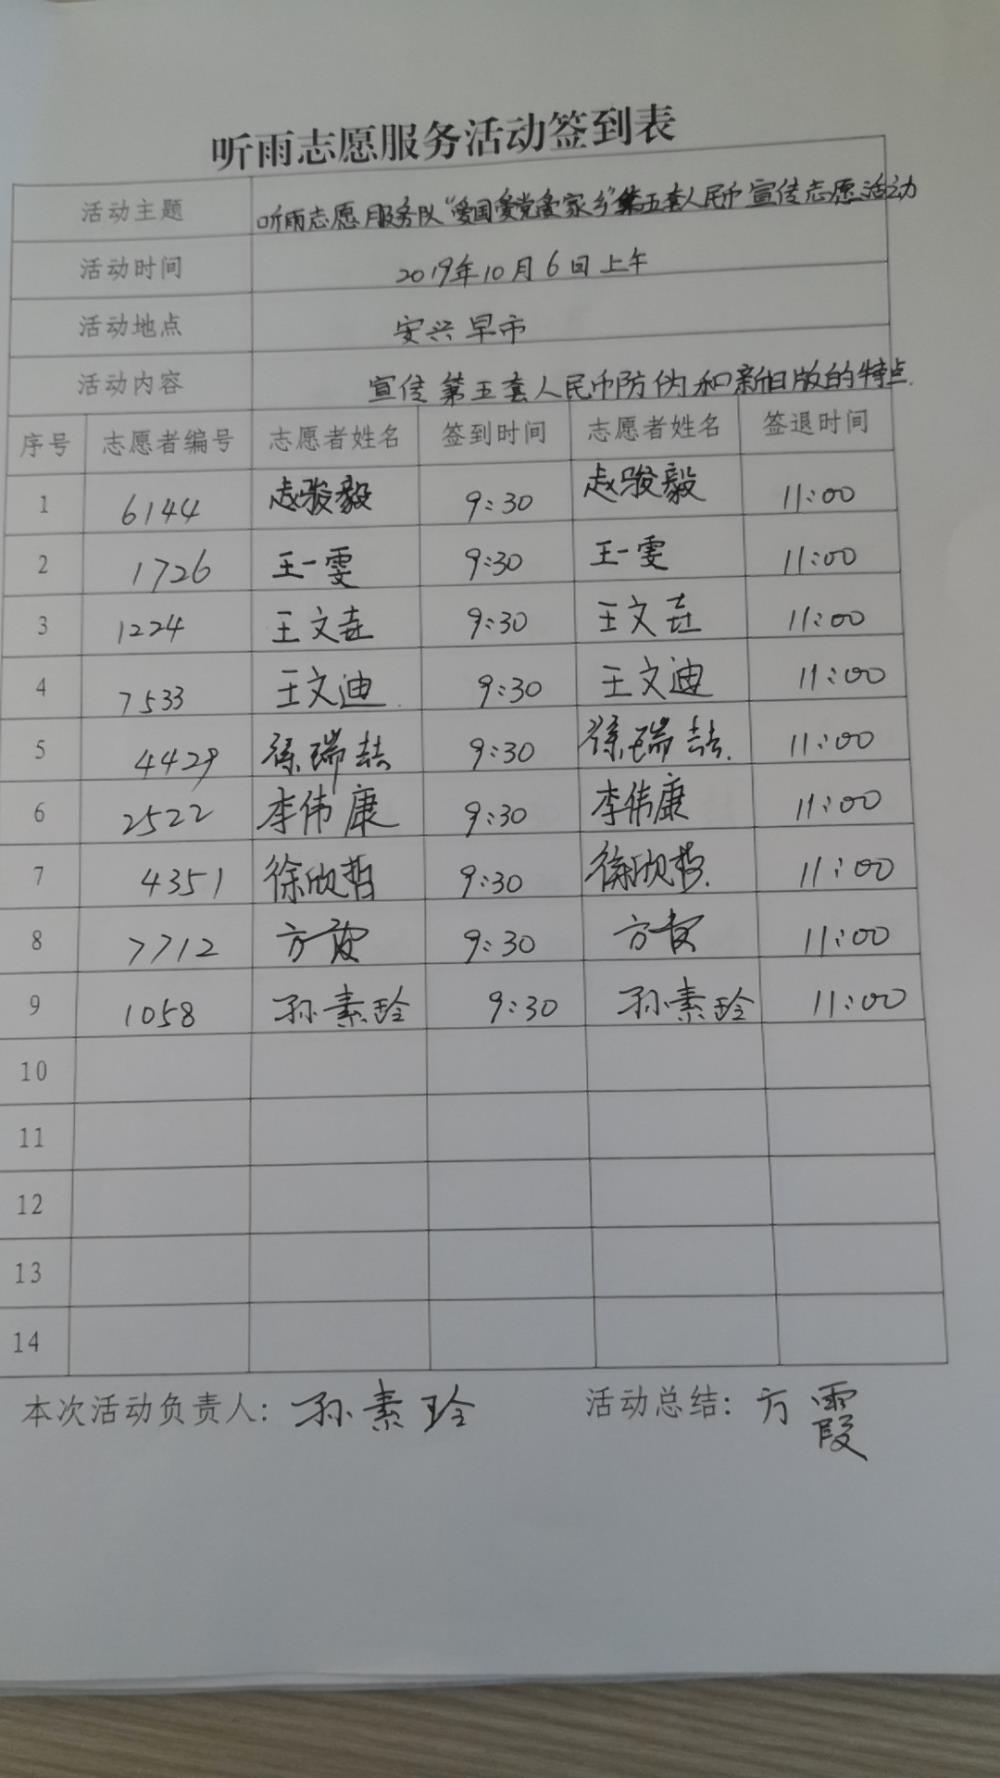 听雨志愿服务活动签到表
活动主题 听雨志愿服务队“爱国爱党爱家乡”第五套人民币宣传志愿活动
活动时间 2019年10月6日上午
活动地点 安兴早市
活动内容 宣传第五套人民币防伪和新旧版的特点.
序号 志愿者编号 志愿者姓名 签到时间 志愿者姓名 签退时间
1 6144 赵骏毅 9:30 赵骏毅 11:00
2 1726 王一雯 9:30 王一雯 11:00
3 1224 王文垚 9:30 王文垚 11:00
4 7533 王文迪 9:30 王文迪 11:00
5 4429 徐瑞喆 9:30 徐瑞喆 11:00
6 2522 李伟康 9:30 李伟康 11:00
7 4351 徐欣哲 9:30 徐欣哲 11:00
8 7712 方 9:30 方 11:00
9 1058 孙素玲 9:30 孙素玲 11:00
10
11
12
13
14
本次活动负责人: 孙素玲 活动总结: 方霞